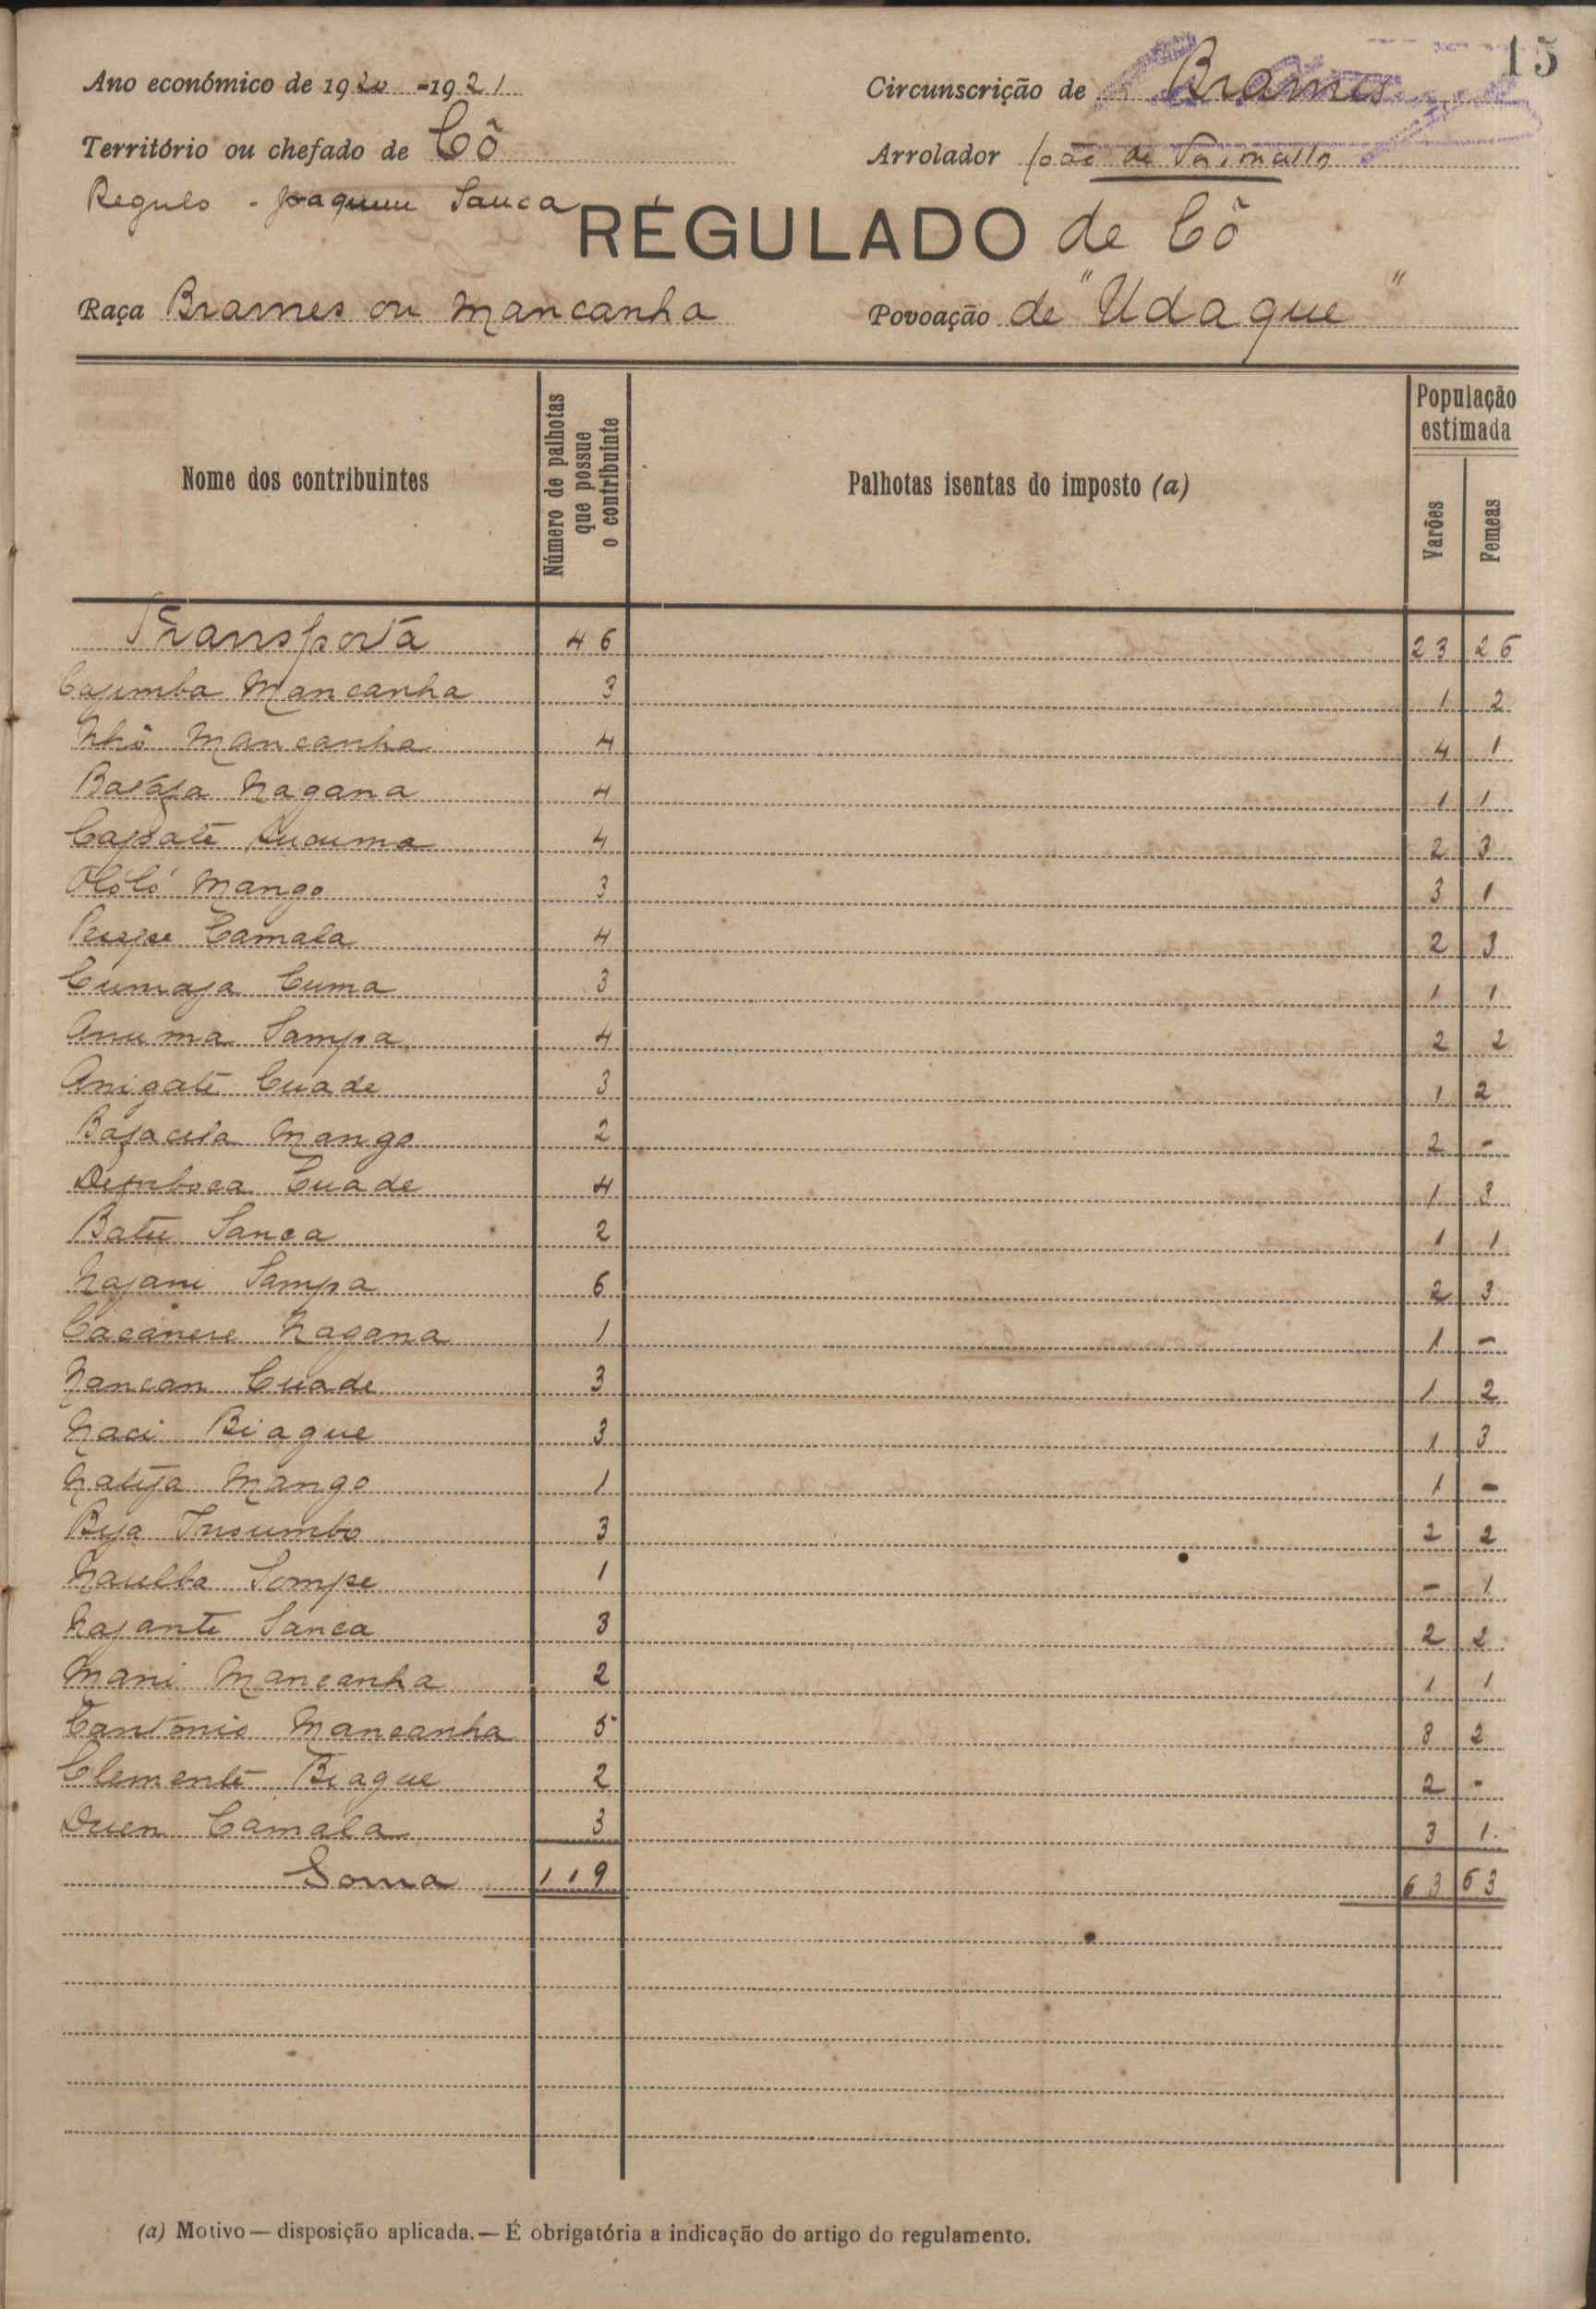 15
Ano económico de 1920-1921 Circunscrição de Brames
Território ou chefado de Cô Arrolador João de
Regulo - Joaquim Sanca
REGULADO de Cô
Raça Brames ou Mancanha Povoação de "Udaque"
Nome dos contribuintes Número de palhotas que possue o contribuinte Palhotas isentas do imposto (a) População estimada Varões Femeas
Transporta 46 23 26
Cajimba Mancanha 3 1 2
Nhô Mancanha 4 4 1
Bataja Nagana 4 1 1
Capaté 4 2 3
Ololó Mango 3 3 1
Camala 4 2 3
Cumaja Cuma 3 1 1
Anuma Sampa 4 2 2
Anigaté Cuade 3 1 2
Mango 2 2 -
Demboca Cuade 4 1 3
Batu Sanca 2 1 1
Najani Sampa 6 2 3
Cacanere Nagana 1 1 -
Nancan Cuade 3 1 2
Naci Biague 3 1 3
Natija Mango 1 1 -
Bija Insumbo 3 2 2
Sompe 1 - 1
Najante Sanca 3 2 2
Mani Mancanha 2 1 1
Cantonio Mancanha 5 3 2
Clemente Biague 2 2 -
Duen Camala 3 3 1
Soma 119 63 63
(a) Motivo — disposição aplicada. — É obrigatória a indicação do artigo do regulamento.